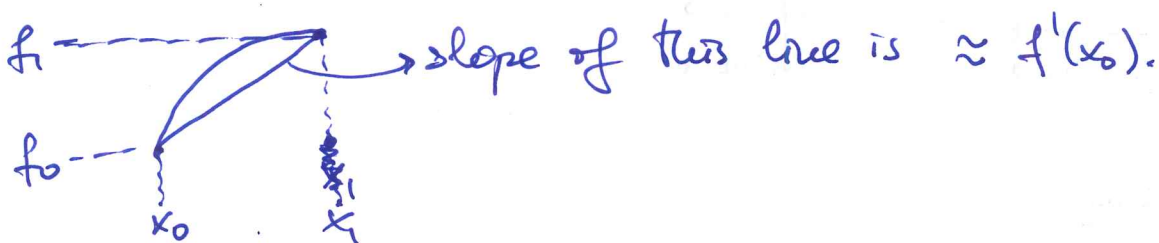 f₁
slope of this line is ≈ f'(x₀).
f₀
x₀
x₁